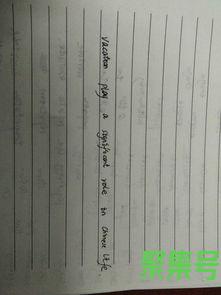 vacation play a significant role in chinese life.
聚集号